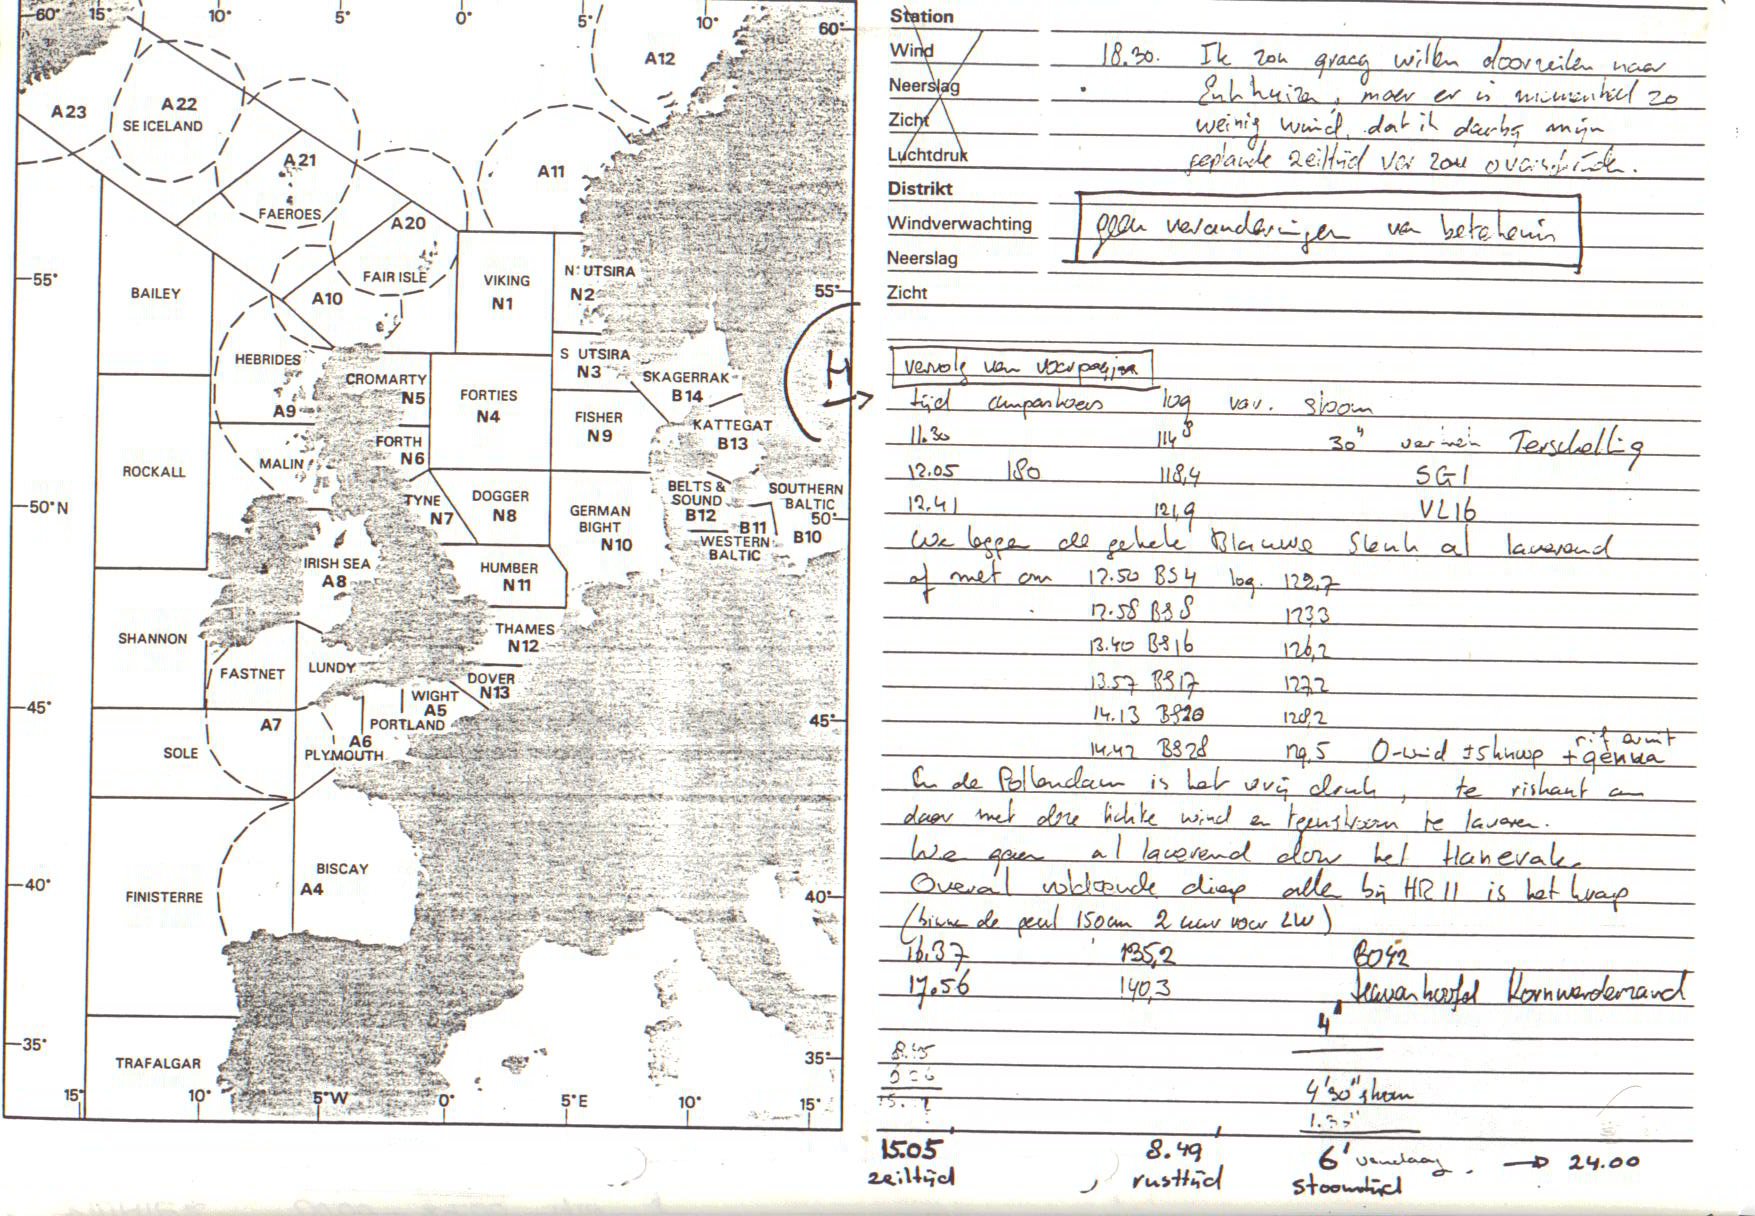 60° 15° 10° 5° 0° 5° 10° 60°
A12
A23
A22
SE ICELAND
A21
FAEROES
A11
A20
FAIR ISLE
A10
VIKING
N1
N. UTSIRA
N2
55° 55°
BAILEY
HEBRIDES
A9
CROMARTY
N5
FORTIES
N4
S UTSIRA
N3
SKAGERRAK
B14
H
FISHER
N9
KATTEGAT
B13
FORTH
N6
ROCKALL
MALIN
TYNE
N7
DOGGER
N8
GERMAN
BIGHT
N10
BELTS &
SOUND
B12
SOUTHERN
BALTIC
B11
B10
WESTERN
BALTIC
50°N 50°
IRISH SEA
A8
HUMBER
N11
SHANNON
THAMES
N12
FASTNET
LUNDY
DOVER
N13
WIGHT
A5
PORTLAND
45° 45°
A7
A6
PLYMOUTH
SOLE
BISCAY
A4
FINISTERRE
40° 40°
35° 35°
TRAFALGAR
15° 10° 5°W 0° 5°E 10° 15°
Station
Wind 18.30. Ik zou graag willen doorzeilen naar
Neerslag Enkhuizen, maar er is momenteel zo
Zicht weinig wind, dat ik daarbij mijn
Luchtdruk geplande zeiltijd ver zou overschrijden.
Distrikt
Windverwachting geen veranderingen van betekenis
Neerslag
Zicht
vervolg van voorpagina
tijd kompaskoers log var. stroom
11.30 114,8 30" Terschelling
12.05 180 118,4 SG1
12.41 121,9 VL16
We leggen de gehele Blauwe Slenk al laverend
af met om 12.50 BS4 log. 122,7
12.58 BS8 123,3
13.40 BS16 126,2
13.57 BS17 127,2
14.13 BS20 128,2
14.42 BS28 129,5 O-wind ± 5 knoop rif eruit + genua
In de Pollendam is het vrij druk, te riskant om
daar met deze lichte wind en tegenstroom te laveren.
We gaan al laverend door het Hanerak.
Overal voldoende diep alleen bij HR11 is het krap
(binnen de geul 150cm 2 uur voor LW)
16.37 135,2 BO42
17.56 140,3 Havenhoofd Kornwerderzand
4'
8.45
4'30" stroom
15.05 8.49 6' vandaag → 24.00
zeiltijd rusttijd stoomtijd